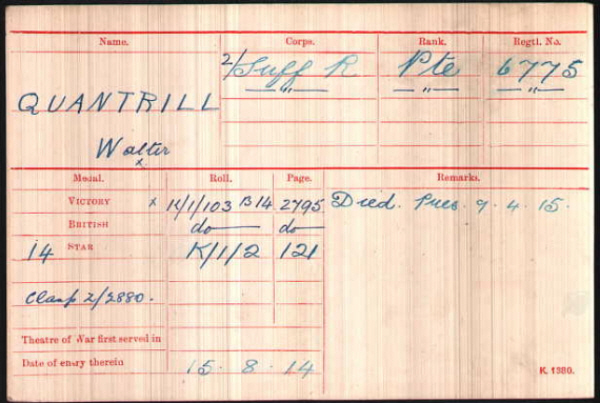 Name. Corps. Rank. Regtl. No.
2/Suff R Pte 6775
QUANTRILL —"— —"— —"—
Walter
x
Medal. Roll. Page. Remarks.
VICTORY x K/1/103 B14 2795 Died. 9.4.15.
BRITISH do— do—
14 STAR K/1/2 121
Clasp 2/2880.
Theatre of War first served in
Date of entry therein 15. 8. 14
K. 1380.